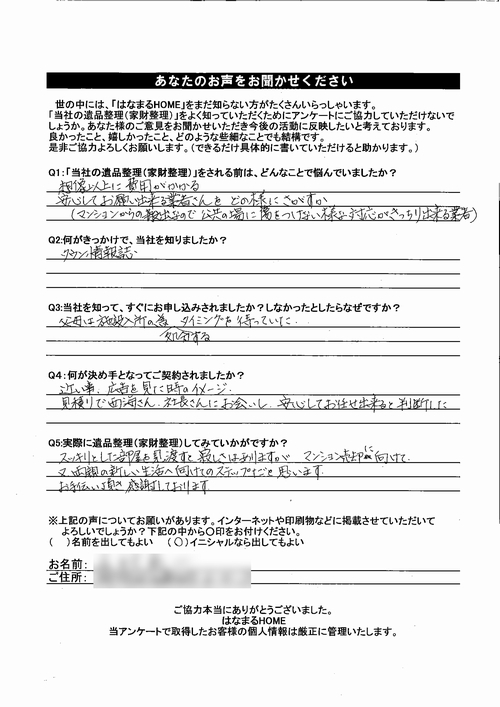 あなたのお声をお聞かせください
世の中には、「はなまるHOME」をまだ知らない方がたくさんいらっしゃいます。
「当社の遺品整理(家財整理)」をよく知っていただくためにアンケートにご協力していただけないで
しょうか。あなた様のご意見をお聞かせいただき今後の活動に反映したいと考えております。
良かったこと、嬉しかったこと、どのような些細なことでも結構です。
是非ご協力よろしくお願いします。(できるだけ具体的に書いていただけると助かります。)
Q1:「当社の遺品整理(家財整理)」をされる前は、どんなことで悩んでいましたか?
想像以上に費用がかかる
安心してお願い出来る業者さんを どの様にさがすか
(マンションからの搬出なので 公共の場に傷をつけない様な対応がきっちり出来る業者)
Q2:何がきっかけで、当社を知りましたか?
タウン情報誌
Q3:当社を知って、すぐにお申し込みされましたか?しなかったとしたらなぜですか?
父母は施設入所の為 タイミングを待っていた.
処分する
Q4:何が決め手となってご契約されましたか?
近い事、広告を見た時のイメージ.
見積りで 社長さんにお会いし、安心してお任せ出来ると判断した
Q5:実際に遺品整理(家財整理)してみていかがですか?
スッキリとした部屋を見渡すと 寂しさはありますが マンション売却に向けて.
又 両親の新しい生活へ向けてのステップだと思います
お手伝い頂き 感謝しております
※上記の声についてお願いがあります。インターネットや印刷物などに掲載させていただいて
よろしいでしょうか?下記の中から〇印をお付けください。
( )名前を出してもよい (〇)イニシャルなら出してもよい
お名前:
ご住所:
ご協力本当にありがとうございました。
はなまるHOME
当アンケートで取得したお客様の個人情報は厳正に管理いたします。